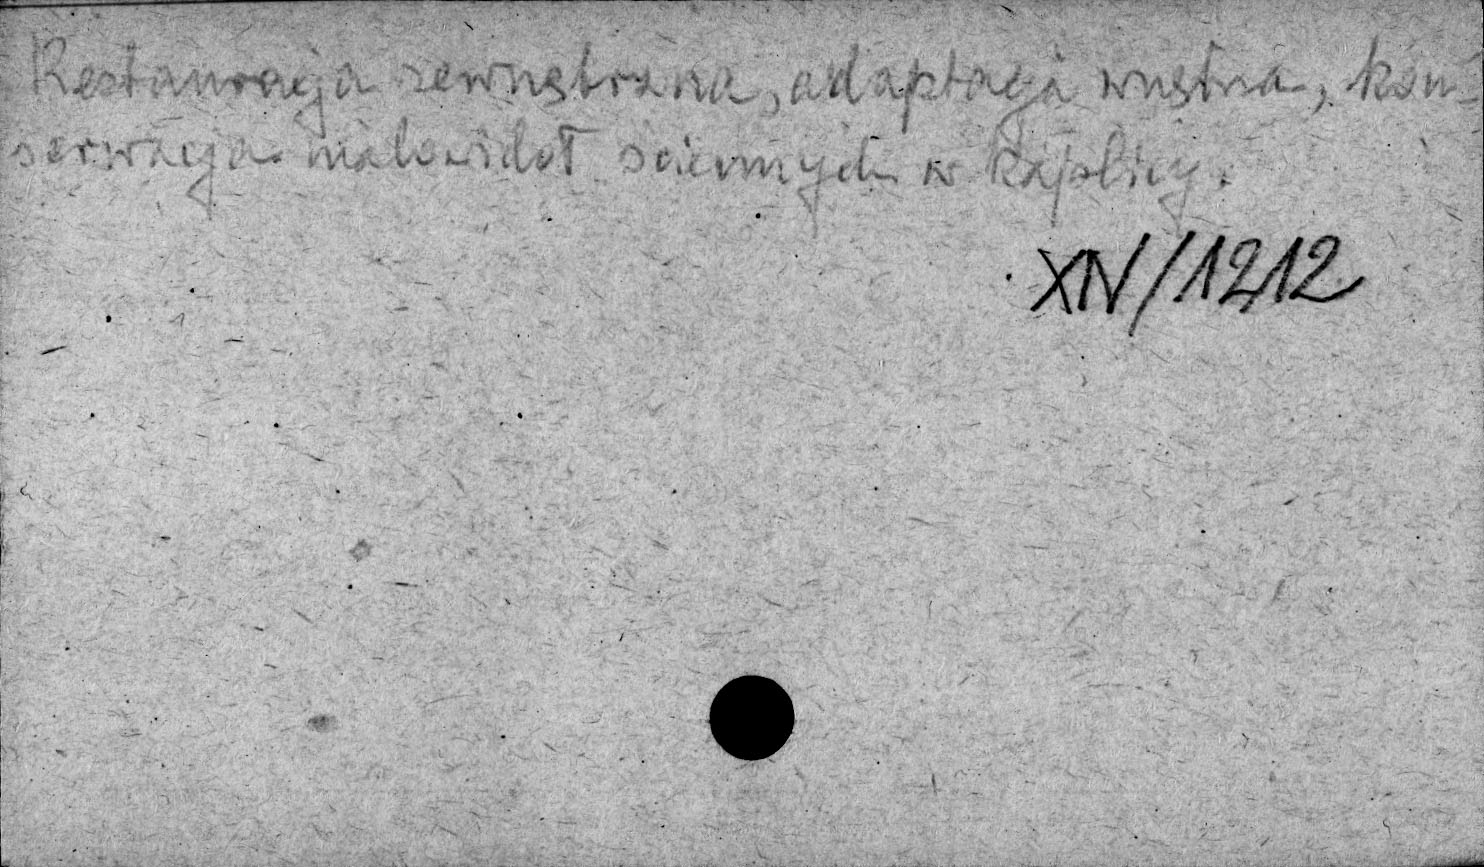 Restauracja zewnętrzna, adaptacja wnętrza, kon-
serwacja malowideł ściennych w kaplicy.
XIV/1212